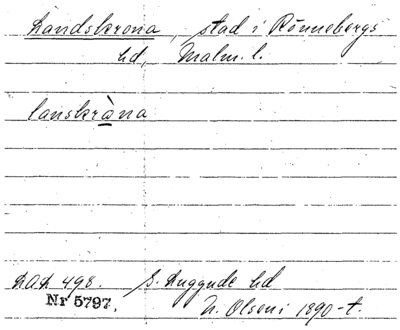 Landskrona, stad i Rönnebergs
hd, Malm. l.
lanskråna
LAL 498. S. Luggude hd
Nr 5797. N. Olseni 1890-t.